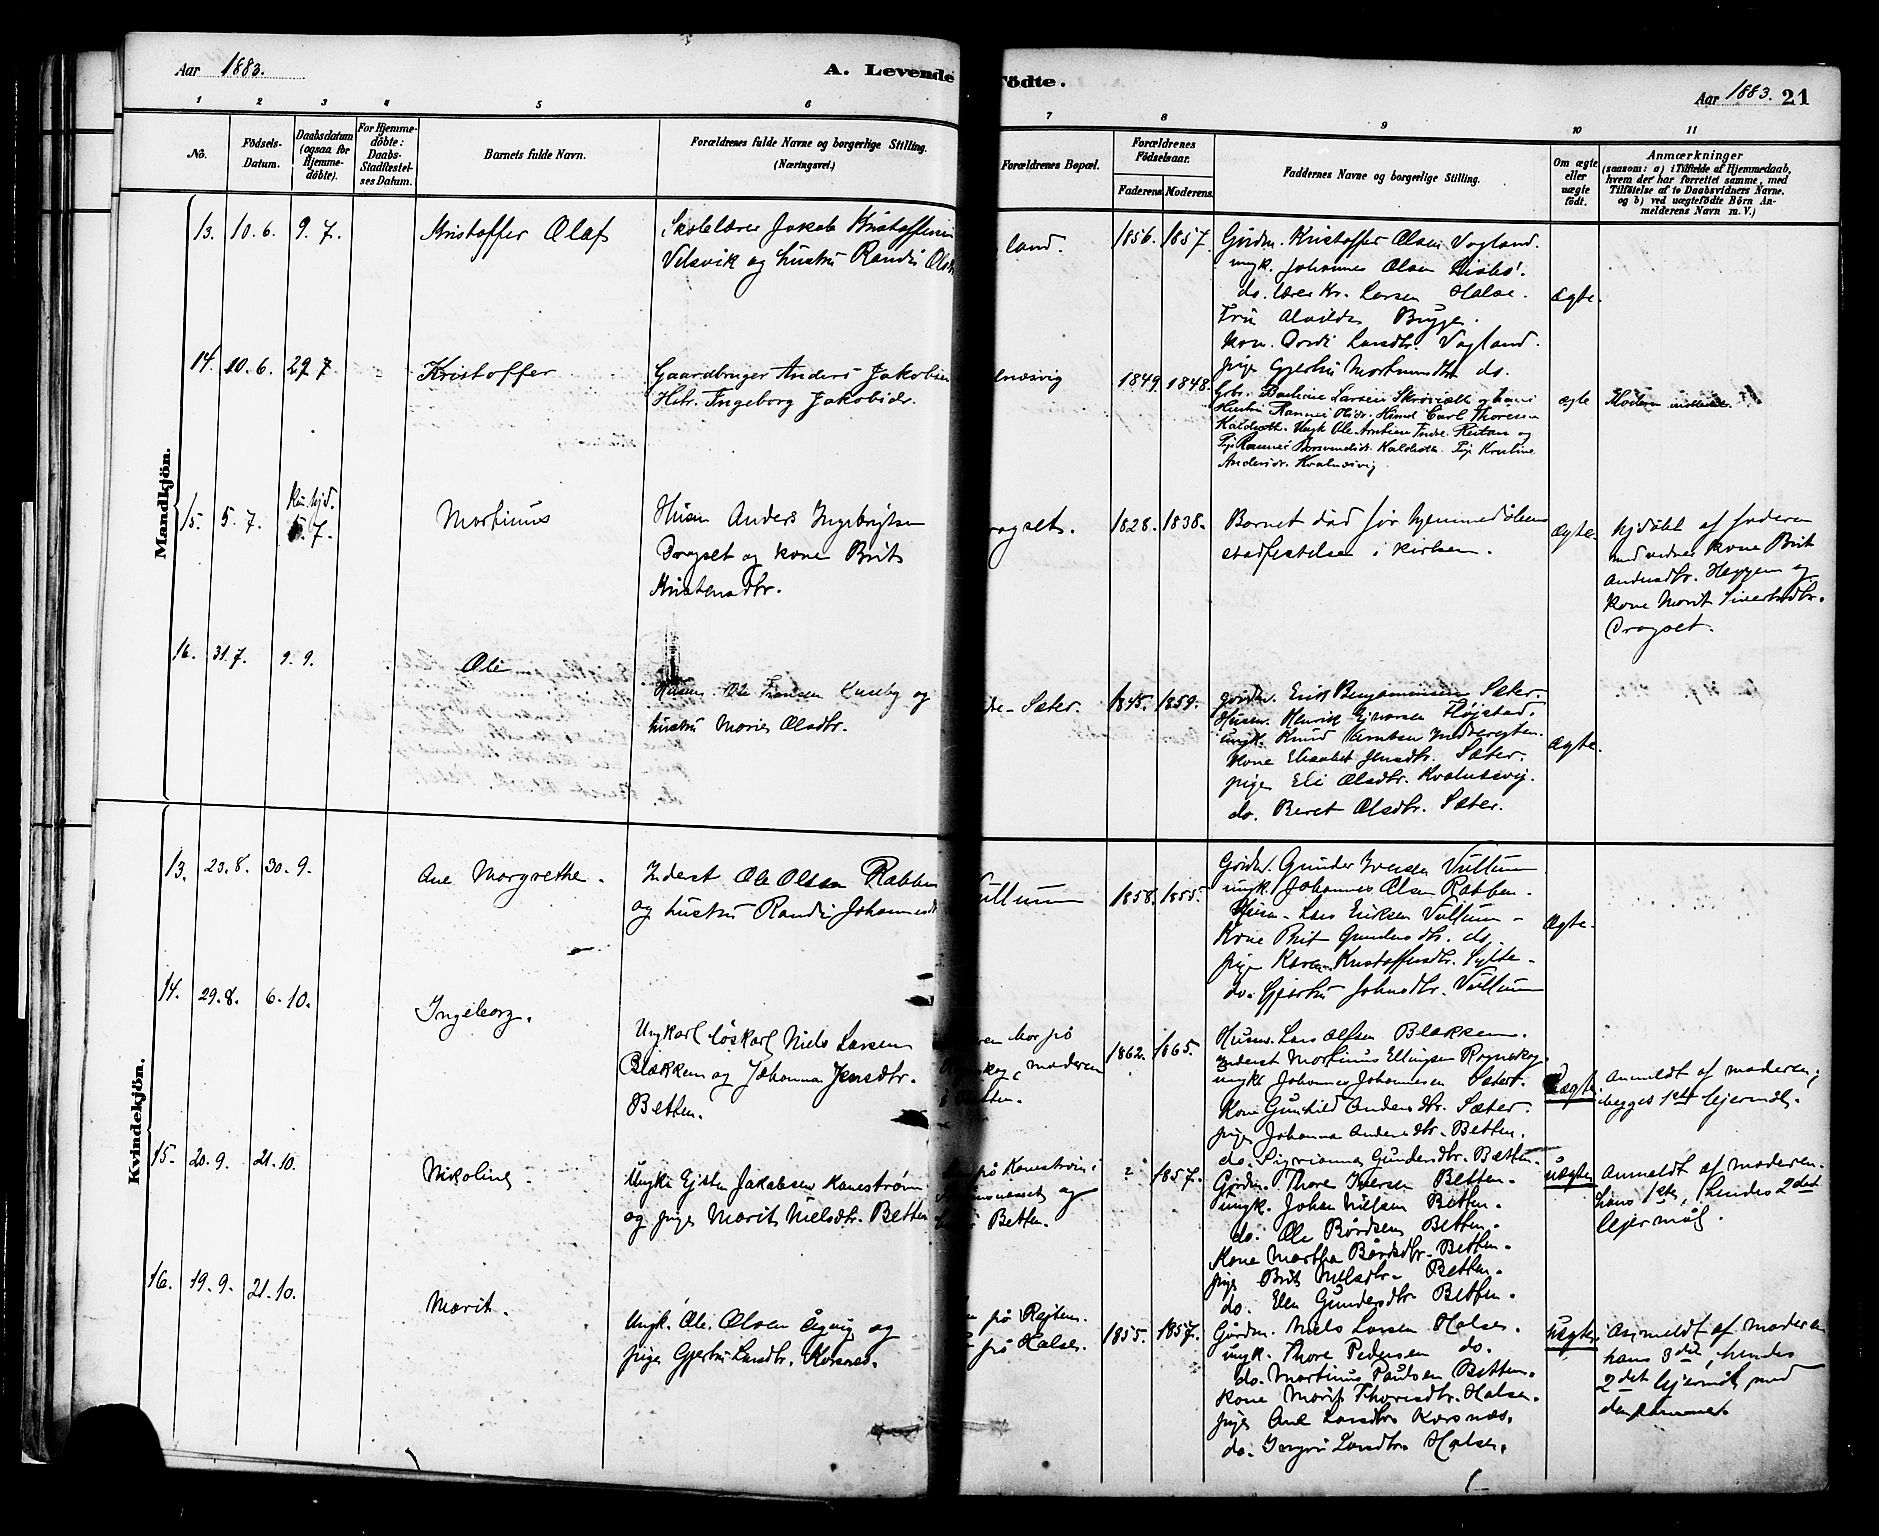 Aar 1883.
A. Levende Födte.
Aar 1883. 21
1 2 3 4 5 6 7 8 9 10 11
No.
Födsels-
Datum.
Daabsdatum
(ogsaa for
Hjemme-
döbte).
For Hjemme-
döbte:
Daabs-
Stadfæstel-
ses Datum.
Barnets fulde Navn.
Forældrenes fulde Navne og borgerlige Stilling.
(Næringsvei.)
Forældrenes Bopæl.
Forældrenes
Födselsaar.
Faderens. Moderens.
Faddernes Navne og borgerlige Stilling.
Om ægte
eller
uægte
födt.
Anmærkninger
(saasom: a) i Tilfælde af Hjemmedaab,
hvem der har forrettet samme, med
Tilföielse af to Daabsvidners Navne,
og b) ved uægtefödte Börn An-
melderens Navn m. V.)
Mandkjön.
13. 10.6. 9.7. Kristoffer Olaf
Skolelærer Jakob Kristoffersen
Vilsvik og hustru Randi Olsdr
land. 1856. 1857
Gårdm. Kristoffer Olsen Vagland.
ungk. Johannes Olsen
do. lærer Kr. Larsen Halse.
Fru Alvilde Bugge.
kone Larsdtr. Vagland.
pige Gjertru do.
Ægte.
14. 10.6. 29 7 Kristoffer
Gaardbruger Anders Jakobsen
Hstr. Ingeborg Jakobsdr.
lnæsvig 1849. 1848.
Larsen og hans
Hustru Carl Thoresen
Ungk Ole Arntsen
Pige Kristine
Andersdr. Kvalnæsvig.
ægte
15. 5.7. 5.7. Martinus
Husm Anders Ingebrigtsen
Dragset og kone Brit
Kristensdtr.
ragset. 1828. 1838.
Barnet död för hjemmedåbens
stadfestelse i kirken.
Ægte.
hjdöbt af faderen
med vidner kone Brit
Andersdtr. Heggem og
kone Marit Sivertsdtr.
Dragset.
16. 31.7. 9.9. Ole
Husm. Ole Fransen Huseby og
hustru Marie Olsdtr.
Sæter. 1845. 1859.
gårdm. Erik Benjaminsen Sæter.
Husm. Henrik Ejnarsen Fløjstad.
ungk. Knud Arntsen
Kone Elisabet Jensdtr. Sæter.
pige Eli Olsdtr. Kvalnæsvig.
do. Beret Olsdtr. Sæter.
Ægte.
Kvindekjön.
13. 23.8. 30.9. Ane Margrethe.
Inderst Ole Olsen Rabben
og hustru Randi Johannesd
ullum 1858. 1855.
Gårdm. Gunder Iversen Vullum
ungk. Johannes Olsen Rabben.
Husm. Lars Eriksen Vullum
Kone Brit Gundersdtr. do.
pige Karen Kristoffersdtr. Sylte
do. Gjertru Johnsdtr. Vullum
Ægte.
14. 29.8. 6.10. Ingeborg.
Ungkarl løskarl Niels Larsen
Blækken og Johanna Jensdtr.
Betten.
ren bor på
moderen
i Betten.
1862. 1865.
Husm. Lars Olsen Blækken.
Inderst Martinus Ellingsen Rognskog
ungk Johannes Johannesen Sæter.
Kone Gunhild Andersdtr. Sæter.
pige Johanna Andersdtr. Betten.
do. Sigrianna Gundersdtr. Betten.
Uægte.
Anmeldt af moderen;
begges 1ste lejermål.
15. 20.9. 21.10. Nikoline
Ungk. Ejsten Jakobsen Kanestrøm
og pige Marit Nielsdtr. Betten
på Kanestrøm i
og
Betten.
? 1857.
Gårdm. Thore Iversen Betten.
ungk. Johan Nielsen Betten.
do. Ole Bårdsen Betten.
Kone Martha Bårdsdtr. Betten.
pige Brit Nielsdtr. Betten.
do. Elen Gundersdtr. Betten.
uægte
Anmeldt af moderen.
hans 1ste, hendes 2det
lejermål.
16. 19.9. 21.10. Marit.
Ungk. Ole Olsen Ågvig og
pige Gjertru Larsdtr. Korsnæs.
på Rejten.
på Halse.
1855. 1857.
Gårdm. Niels Larsen Halse.
ungk. Thore Pedersen do.
do. Martinus Paulsen Betten.
kone Marit Thoresdtr. Halse.
pige Ane Larsdtr. Korsnæs.
do. Ingri Larsdtr. Halse.
Uægte.
Anmeldt af moderen
hans 3die, hendes
2det lejermål med